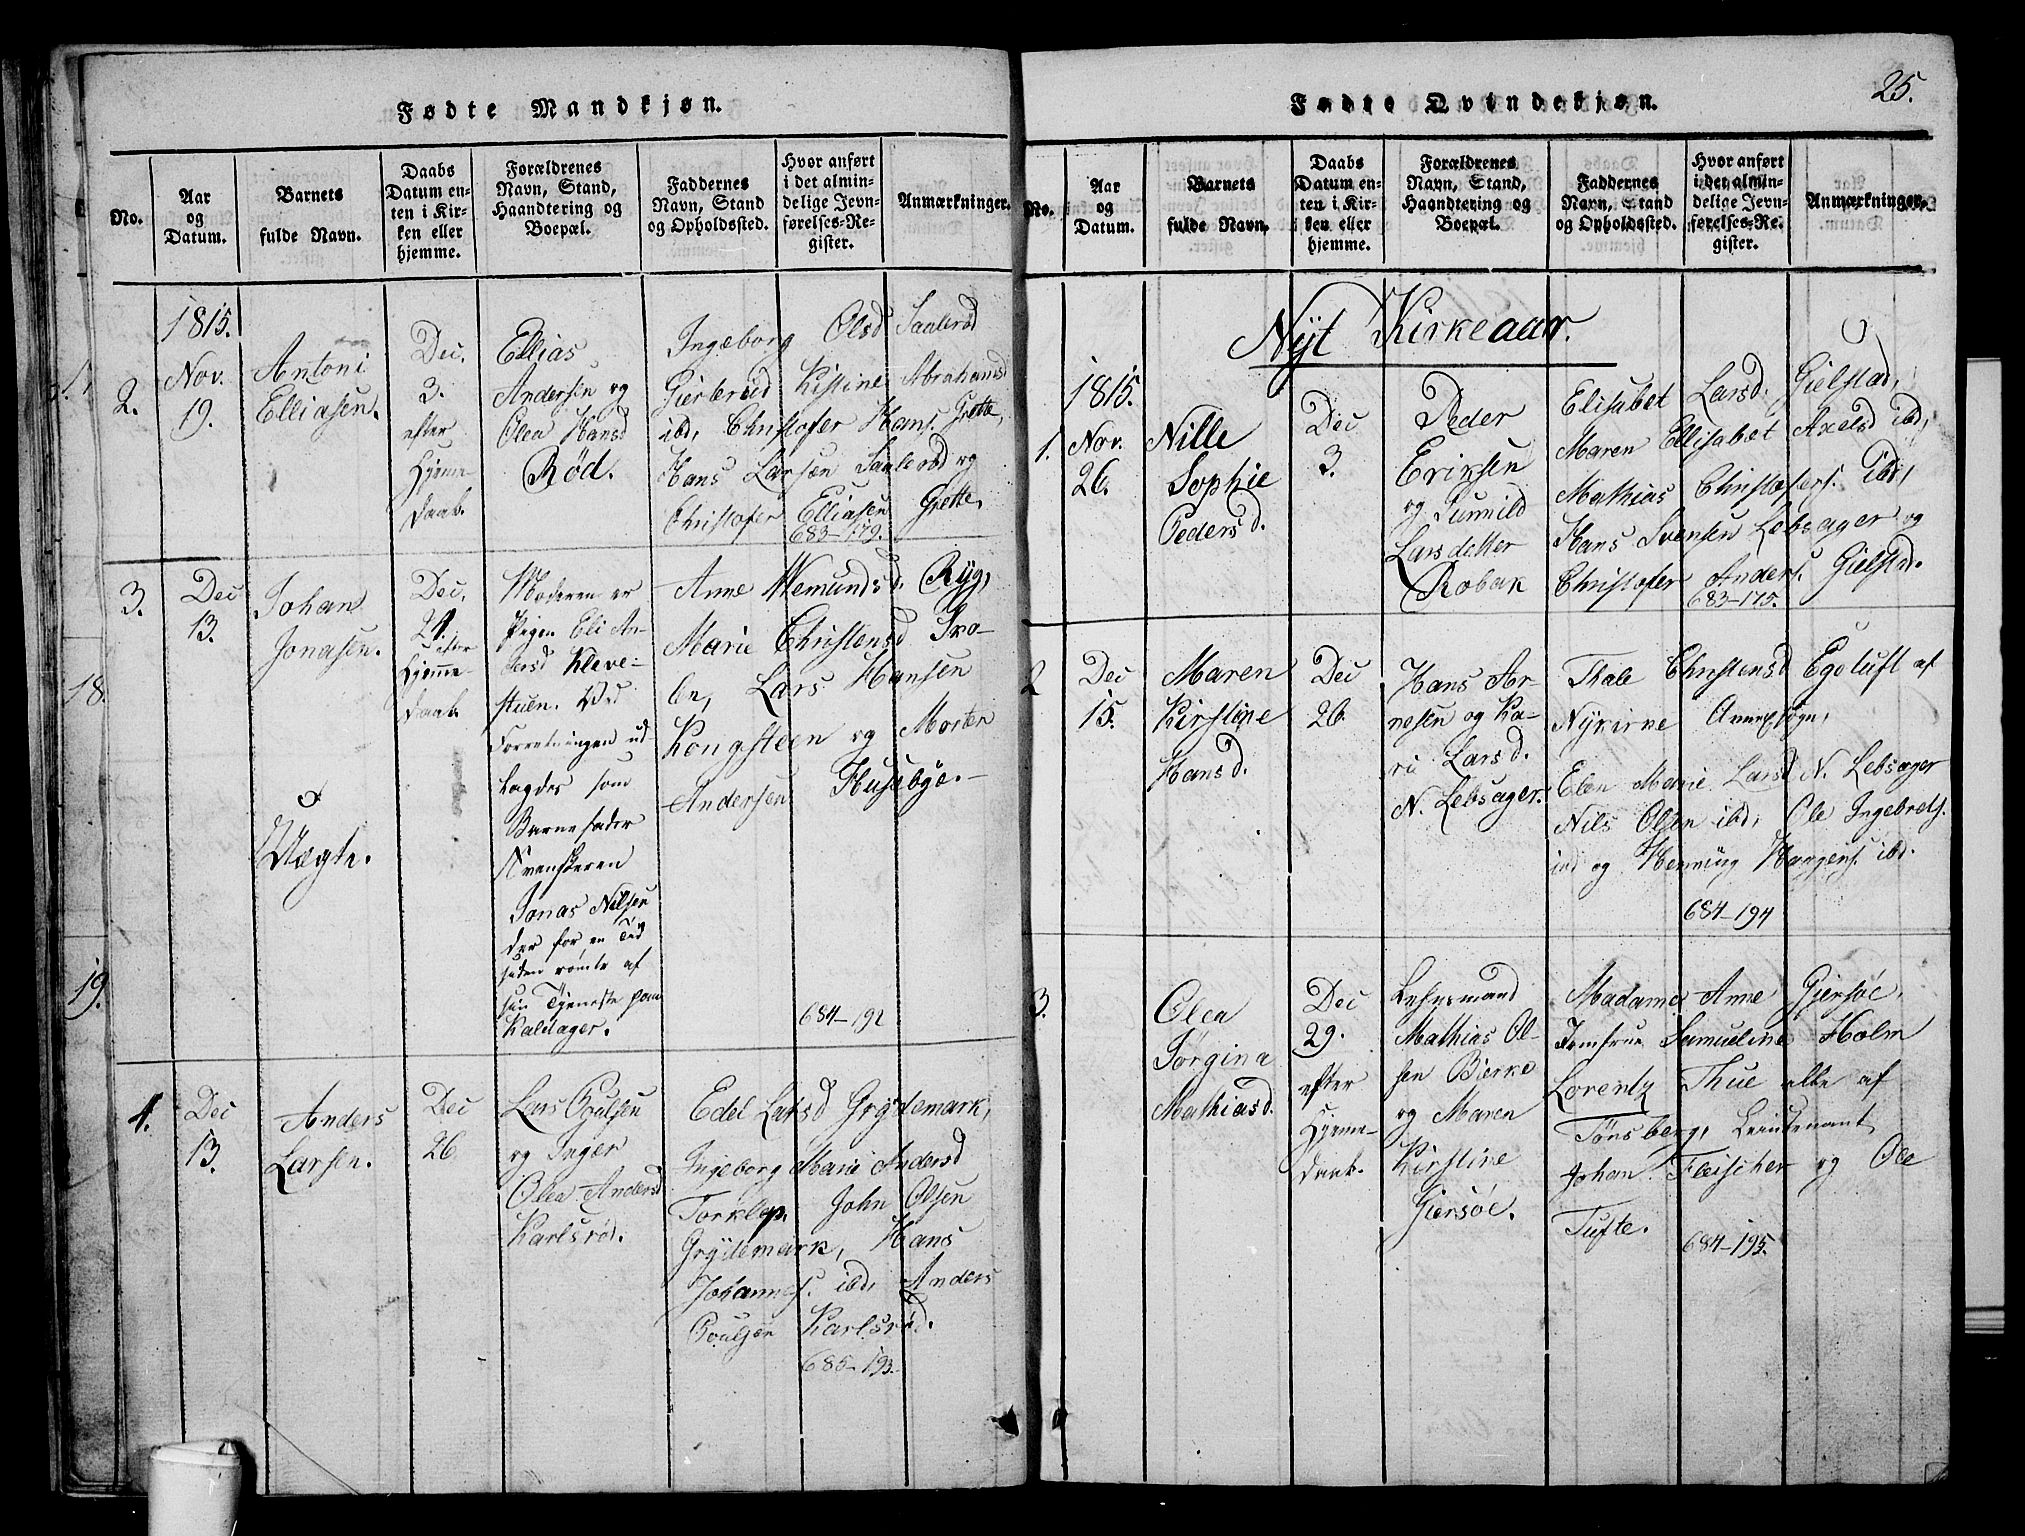 Fødte Mandkjøn.
No.
Aar
og
Datum.
Barnets
fulde Navn.
Daabs
Datum en-
ten i Kir-
ken eller
hjemme.
Forældrenes
Navn, Stand,
Haandtering og
Boepæl.
Faddernes
Navn, Stand
og Opholdssted.
Hvor anført
i det almin-
delige Jevn-
førelses-Re-
gister.
Anmærkninger.
2.
1815.
Nov.
19.
Antoni
Elliasen.
Dec.
3.
efter
Hjemme
daab.
Ellias
Andersen og
Olea Hansd
Rød.
Ingeborg Olsd Saalerød
Gierterød Kistine Abrahamsd
ibd, Christofer Hans. Grette,
Hans Larsen Saalerød og
Christofer Elliasen Grette.
683-179.
3.
Dec
13.
Johan
Jonasen.
Uægte.
Dec.
24.
efter
Hjemme
daab.
Moderen er
Pigen Eli An-
dersd Kleve-
stuen. Ved
Forretningen ud
lagdes som
Barnefader
Svenskeren
Jonas Nilsen
der for en Tid
siden rømte af
sin Tjeneste paa
Kaldager.
Anne Wemundsd. Ryg,
Marie Christensd Sko-
len, Lars Hansen
Kongsteen og Morten
Andersen Husebye.
684-192
4.
Dec
13.
Anders
Larsen.
Dec
26
Lars Poulsen
og Inger
Olea Andersd
Karlsrød.
Edel Larsd Grydemark,
Ingeborg Marie Andersd
Torklep. John Olsen
Grydemark, Hans
Johannes. ibd, Anders
Poulsen Karlsrød.
685-193.
18.
19.
25.
Fødte Qvindekjøn.
No.
Aar
og
Datum.
Barnets
fulde Navn.
Daabs
Datum en-
ten i Kir-
ken eller
hjemme.
Forældrenes
Navn, Stand,
Haandtering og
Boepæl.
Faddernes
Navn, Stand
og Opholdssted.
Hvor anført
i det almin-
delige Jevn-
førelses-Re-
gister.
Anmærkninger.
Nyt Kirkeaar.
1.
1815.
Nov.
26.
Nille
Sophie
Pedersd.
Dec
3.
Peder
Eriksen
og Gunnild
Larsdatter
Robak
Elisabet Larsd. Gielstad,
Maren Ellisabet Axelsd ibd,
Mathias Christofers. ibd,
Hans Svensen Lebsager og
Christofer Anders. Gielstad.
683-175.
2
Dec
15.
Maren
Kirstine
Hansd.
Dec
26.
Hans Ar-
nesen og Ka-
ri Larsd.
N. Lebsager.
Thale Christensd Egeluft af
Nykirke Annexsogn,
Elen Marie Larsd N. Lebsager
Nils Olsen ibd, Ole Ingebrets.
ibd og Henning Hangens. ibd.
684-194
3.
Olea
Jørgina
Mathiasd.
Dec
29.
efter
Hjemme-
daab.
Lehnsmand
Mathias Ol-
sen Bierke
og Maren
Kirstine
Giersøe.
Madame Anne Gjersøe,
Jomfrue Samueline Holm
Lorentz Thue alle af
Tønsberg, Lieutenant
Johan Fleischer og Ole
Tufte.
684-195.